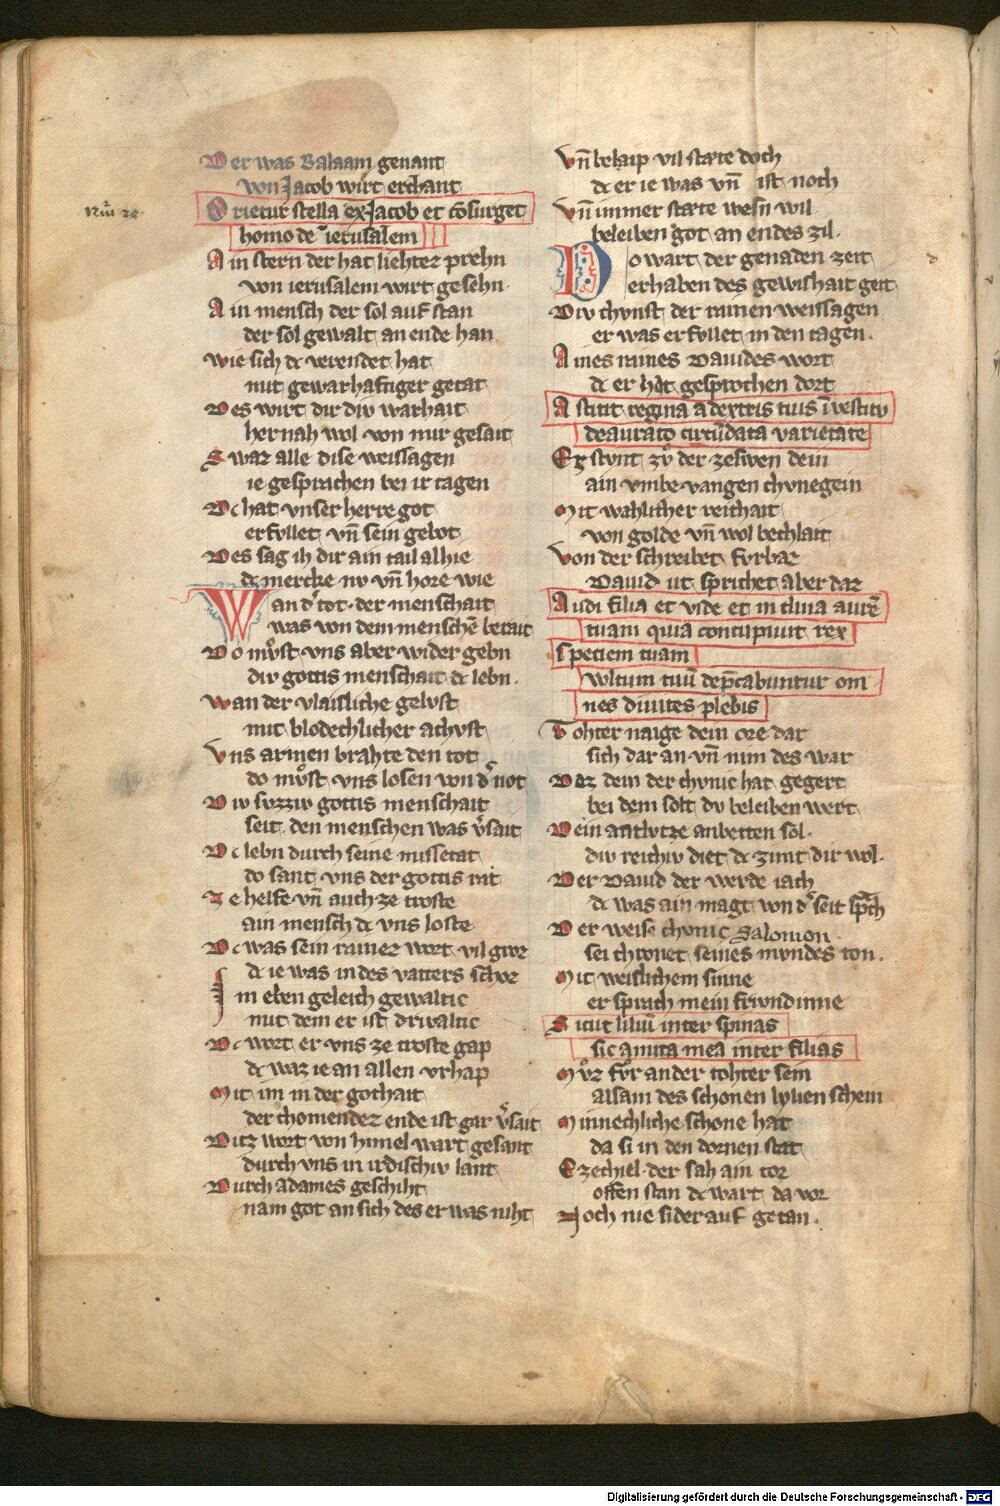 Nūi 24
Der was Balaam genant
von Jacob wirt erchant
Orietur stella ex Jacob et cōsurget
homo de ierusalem
Ain stern der hat liehter prehn
von ierusalem wirt gesehn
Ain mensch der sol auf stan
der sol gewalt an ende han
wie sich dc verendet hat
mit gewarhaftiger getat
Des wirt dir div warhait
her nah wol von mir gesait
Swaz alle dise weissagen
ie gesprachen bei ir tagen
Dc hat vnser herre got
erfvllet vn̄ sein gebot
Des sag ih dir ain tail alhie
dc merche nv vn̄ hore wie
Wan d' tot der menschait
was von dem menschē berait
Do mvͦst vns aber wider gebn
div gottis menschait dc lebn
wan der vlaisliche gelvst
mit blodechlicher achvst
Vns armen brahte den tot
do mvͦst vns losen von d' not
Div svzziv gottis menschait
seit den menschen was v'sait
Dc lebn durch seine missetat
do sant vns der gottis rat
Ze helfe vn̄ auch ze troste
ain mensch dc vns loste
Dc was sein rainez wort vil groz
dc ie was in des vatters schoz
Im eben geleich gewaltic
mit dem er ist drivaltic
Dc wort er vns ze troste gap
dc waz ie an allen vrhap
Mit im in der gothait
der chomendez ende ist gar v'sait
Ditz wort von himel wart gesant
durch vns in irdischiv lant
Durch adames geschiht
nam got an sich des er was niht
Vn̄ belaip vil stæte doch
dc er ie was vn̄ ist noch
Vn̄ immer stæte wesn wil
beleiben got an endes zil
Do wart der genaden zeit
erhaben des gewishait geit
Div chvnst der rainen weissagen
er was erfvllet in den tagen
Aines raines Dauides wort
dc er hat gesprochen dort
Astitit regina a dextris tuis ī vestitv
deaurato circūdata varietate
Ez stvnt zvͦ der zeswen dein
ain vmbevangen chvnegein
Mit wahlicher reichait
von golde vn̄ wol bechlait
Von der schreibet fvrbaz
Dauid vt sprichet aber daz
Audi filia et vide et inclina aurē
tuam quia concupiuit rex
speciem tuam
wltum tuū dep̄cabuntur om
nes diuites plebis
Tohter naige dein ore dar
sich dar an vn̄ nim des war
Daz dein der chvnic hat gegert
bei dem solt dv beleiben wert
Dein antlvtze anbetten sol
div reichiv diet dc zimt dir wol
Der Dauid der werde iach
dc was ain magt von d' seit sprach
Der weise chvnic Salomon
sei chronet seines mvndes ton
Mit weislichem sinne
er sprach mein frivndinne
Sicut liliū inter spinas
sic amica mea inter filias
Mvͦz fvͦr ander tohter sein
alsam des schonen lylien schein
Minnechliche schone hat
da si in den dornen stat
Ezechiel der sah ain tor
offen stan dc wart da vor
Noch nie sider auf getan
Digitalisierung gefördert durch die Deutsche Forschungsgemeinschaft - DFG